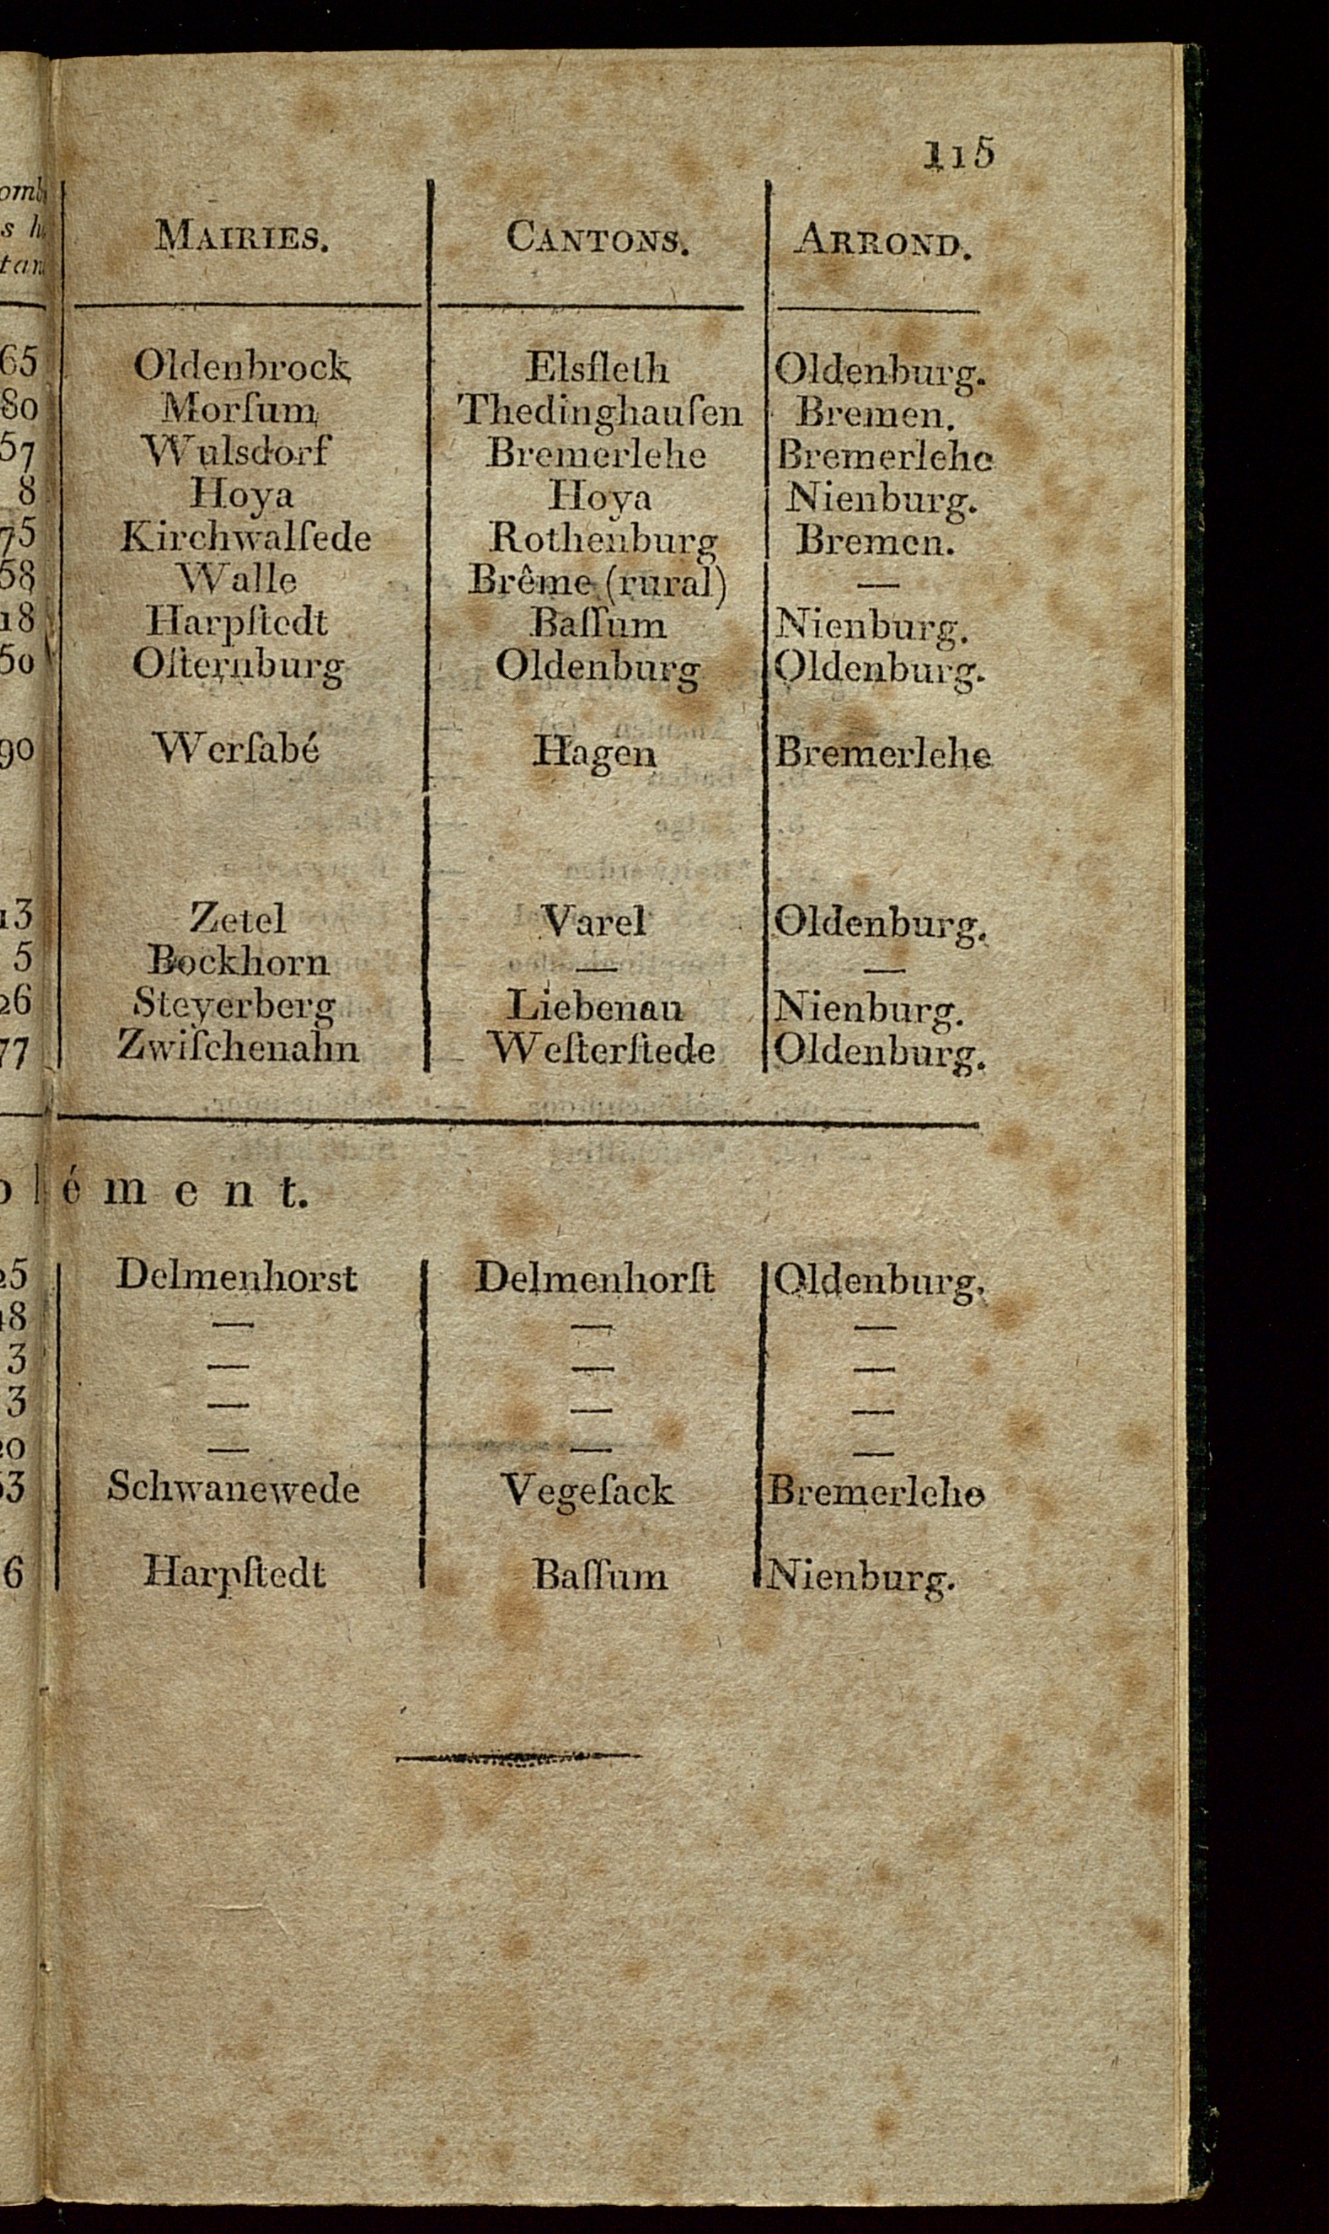 115
MAIRIES. CANTONS. ARROND.
65 Oldenbrock Elsfleth Oldenburg.
80 Morſum Thedinghauſen Bremen.
57 Wulsdorf Bremerlehe Bremerlehe
8 Hoya Hoya Nienburg.
75 Kirchwalſede Rothenburg Bremen.
58 Walle Brême (rural) —
18 Harpſtedt Baſſum Nienburg.
50 Oſternburg Oldenburg Oldenburg.
90 Werſabé Hagen Bremerlehe
13 Zetel Varel Oldenburg.
5 Bockhorn — —
26 Steyerberg Liebenau Nienburg.
77 Zwiſchenahn Weſterſtede Oldenburg.
lément.
25 Delmenhorst Delmenhorſt Oldenburg.
18 — — —
3 — — —
3 — — —
20 — — —
63 Schwanewede Vegeſack Bremerlehe
6 Harpſtedt Baſſum Nienburg.